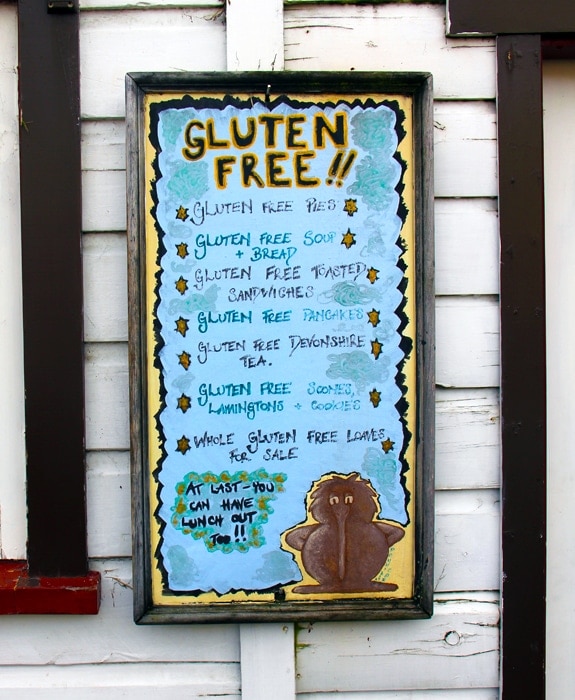 GLUTEN
FREE!!
GLUTEN FREE PIES
GLUTEN FREE SOUP
+ BREAD
GLUTEN FREE TOASTED
SANDWICHES
GLUTEN FREE PANCAKES
GLUTEN FREE DEVONSHIRE
TEA.
GLUTEN FREE SCONES,
LAMINGTONS + COOKIES
WHOLE GLUTEN FREE LOAVES
FOR SALE
AT LAST - YOU
CAN HAVE
LUNCH OUT
TOO!!